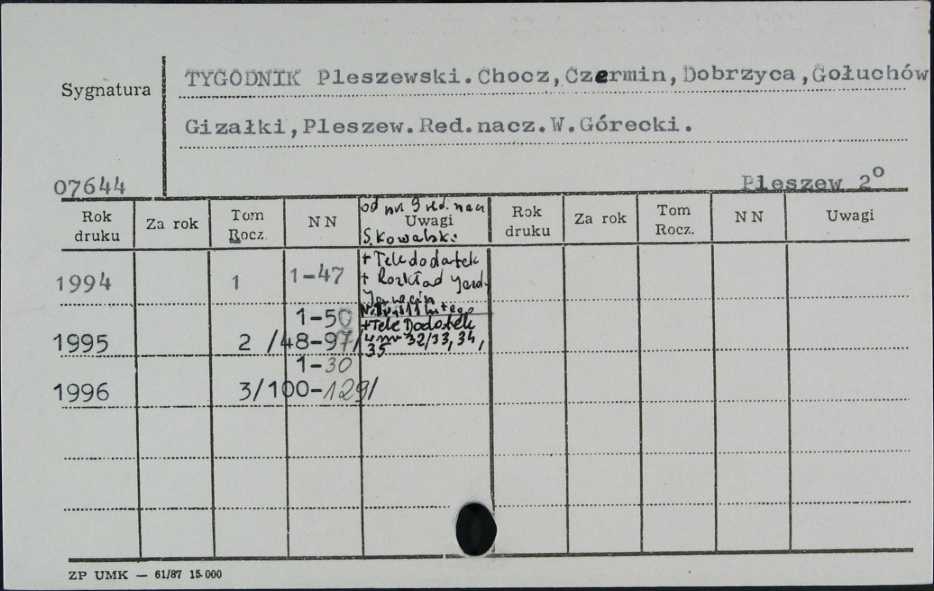 Sygnatura
TYGODNIK Pleszewski.Chocz,Czermin,Dobrzyca,Gołuchów
Gizałki,Pleszew.Red.nacz.W.Górecki.
07644
Pleszew 2°
Rok druku Za rok Tom Rocz. NN Uwagi Rok druku Za rok Tom Rocz. NN Uwagi
od nr 9 red. nacz
S. Kowalski
1994 1 1-47 + Teledodatek
+ Rozkład jazd.
1-50 + Tele Dodatek
1995 2 /48-97/ w nr 32/33, 34,
35
1-30
1996 3/100-129/
ZP UMK — 61/87 15.000